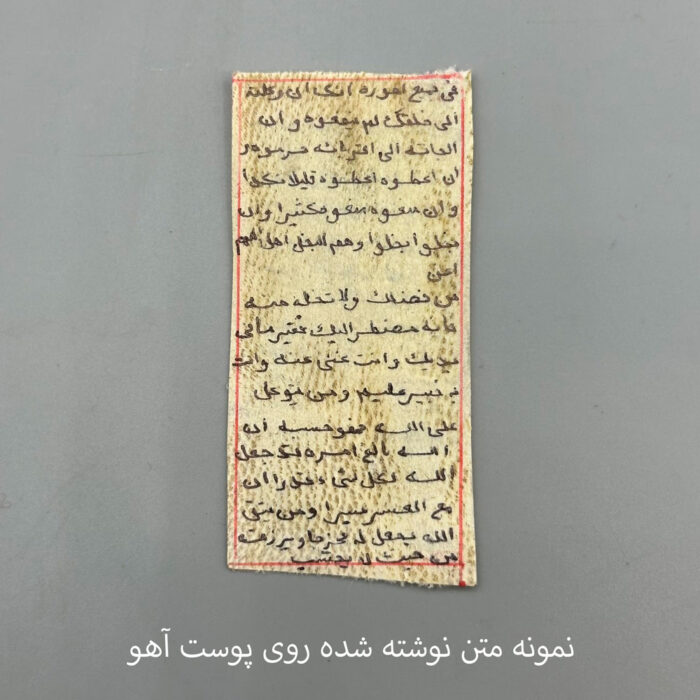 في جميع اموره انك ان وكلته
الى خلقك لم ينفعوه وان
الجاته الى اقربائه حرموه و
ان اعطوه اعطوه قليلا نكدا
وان منعوه منعو كثيرا وان
بخلوا بخلوا وهم للبخل اهل اللهم
اغن
من فضلك ولا تخله منه
فانه مضطر اليك فقير ما في
يديك وانت غني عنه وانت
به خبير عليم ومن يتوكل
على الله فهو حسبه ان
الله بالغ امره قد جعل
الله لكل شيء قدرا ان
مع العسر يسرا ومن يتق
الله يجعل له مخرجا ويرزقه
من حيث لا يحتسب
نمونه متن نوشته شده روی پوست آهو